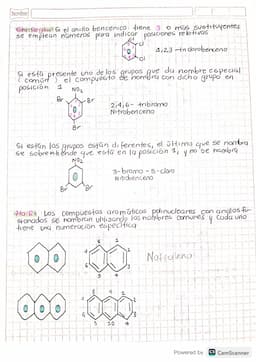 Nombre
Si el anillo bencenico tiene 3 o más sustituyentes
se emplean números para indicar posiciones relativas
Cl
Cl
Cl
1,2,3-triclorobenceno
Si está presente uno de los grupos que da nombre especial
(común) el compuesto se nombra con dicho grupo en
posición 1
NO₂
Br
Br
Br
2,4,6-tribromo
Nitrobenceno
Si están los grupos están diferentes, el último que se nombra
se sobrentiende que está en la posición 1, y no se nombra
NO₂
Br
Cl
3-bromo-5-cloro
nitrobenceno
Los compuestos aromáticos polinucleares con anillos fu-
sionados se nombran utilizando los nombres comunes y cada uno
tiene una numeración específica
Naftaleno
Powered by CS CamScanner